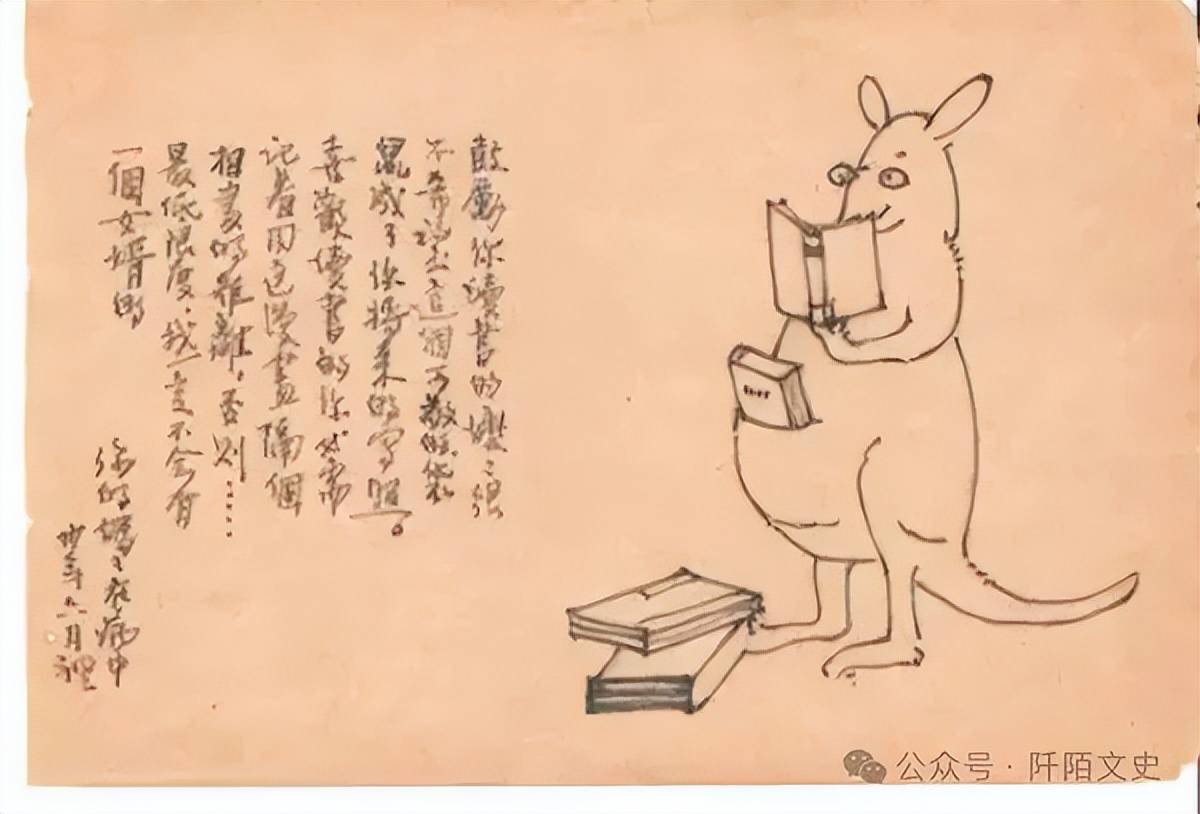 鼓勵你讀書的媽々很
不希望這個可敬的袋
鼠成了你將来的写照。
喜歡讀書的你必需
記着同這漫畫隔個
相當的距離，否則……
最低限度，我一定不会有
一個女婿的
你的媽々在瘋中
年六月裡
公众号 · 阡陌文史